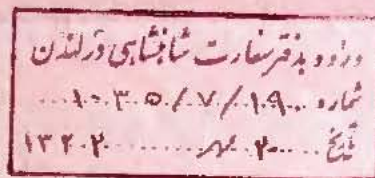 ورود بدفتر سفارت شاهنشاهی در لندن
شماره ۱۰۳۵/۷/۱۹
تاریخ ۲۰ مهر ۱۳۲۲